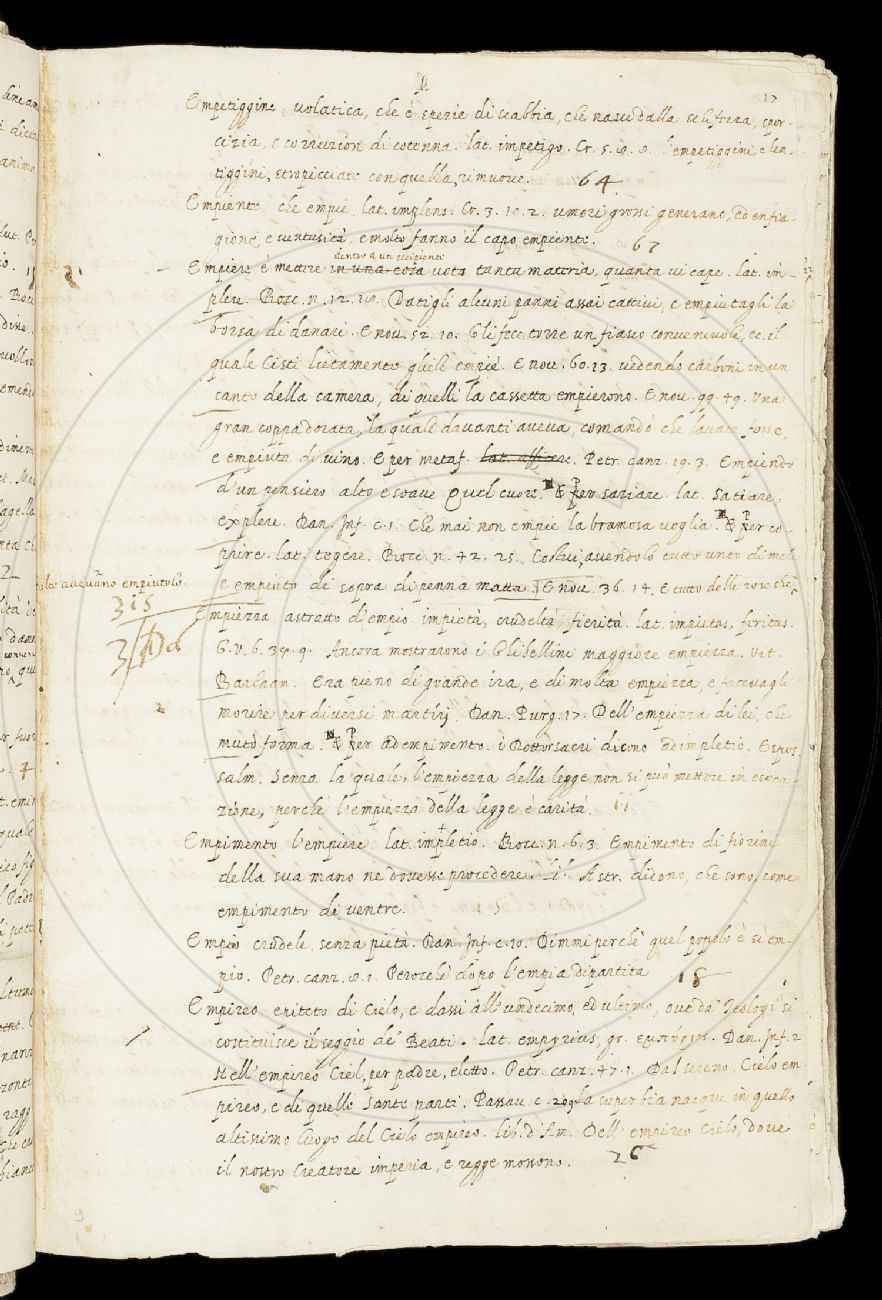 M
17
Empetiggine volatica, che è spezie di scabbia, che nasce dalla schifezza, spor-
cizia, e corruzion di cotenna. lat. impetigo. Cr. 5. 8. 8. l'empetiggini, e len-
tiggini, stropicciate con quella, rimuove. 64
Empiente che empie. lat. implens. Cr. 3. 10. 2. umori grossi generano, ed enfia
gione, e ventusità, e molto fanno il capo empiente. 67
dentro a un recipiente
Empiere è mettere in una cosa vota tanta materia, quanta vi cape. lat. im-
plere. Bocc. n. 12. 18. Datigli alcuni panni assai cattivi, e empiutagli la
borsa di danari. E nov. 52. 10. Gli fece torre un fiasco convenevole, ec. il
quale Cisti lietamente gliele empiè. E nov. 60. 13. vedendo carboni in un
canto della camera, di quelli la cassetta empierono. E nov. 99. 49. Una
gran coppa dorata, la quale davanti aveva, comandò che lavata fosse,
e empiuta di vino. E per metaf. lat. afficere. Petr. canz. 19. 3. Empiendo
d'un pensiero alto e soave Quel cuore. & Per saziare. lat. satiare,
explere. Dan. Inf. c. 1. Che mai non empie la bramosa voglia. & Per co-
prire. lat. tegere. Bocc. n. 42. 25. Costui, avendolo tutto unto di mele
e empiuto di sopra di penna matta. E nov. 36. 14. E tutto delle rose che
colte avevano empiutolo.
315
Empiezza astratto d'empio. impietà, crudeltà, fierità. lat. impietas, feritas.
G. V. 6. 34. 9. Ancora mostrarono i Ghibellini maggiore empiezza. Vit.
Barlaam. Era pieno di grande ira, e di molta empiezza, e facevagli
morire per diversi martirij. Dan. Purg. 17. Dell'empiezza di lei, che
mutò forma. & Per adempimento. i Dottor sacri dicono adimpletio. Espos.
salm. Senza la quale, l'empiezza della legge non si può mettere in esecu-
zione, perchè l'empiezza della legge è carità. 11
Empimento l'empiere. lat. impletio. Bocc. n. 6. 3. Empimento di fiorini
della sua mano ne dovesse procedere. Astr. didono, che sono, come
empimento di ventre.
Empio crudele, senza pietà. Dan. Inf. c. 10. Dimmi perchè quel popolo è sì em-
pio. Petr. canz. 8. 1. Perocchè dopo l'empia dipartita 18
Empireo epiteto di Cielo, e dassi all'undecimo, ed ultimo, ove da' Teologi si
costituisce il seggio de' Beati. lat. empyreus, gr. εμπύριος. Dan. Inf. 2.
Nell'empireo Ciel, per padre, eletto. Petr. canz. 47. 1. Dal sereno, Cielo em-
pireo, e di quelle sante parti. Passav. c. 209. La superbia nacque in quello
altissimo luogo del Cielo empireo. lib. d'Am. Dell'empireo Cielo, dove
il nostro Creatore imperia, e regge mossono. 26
9